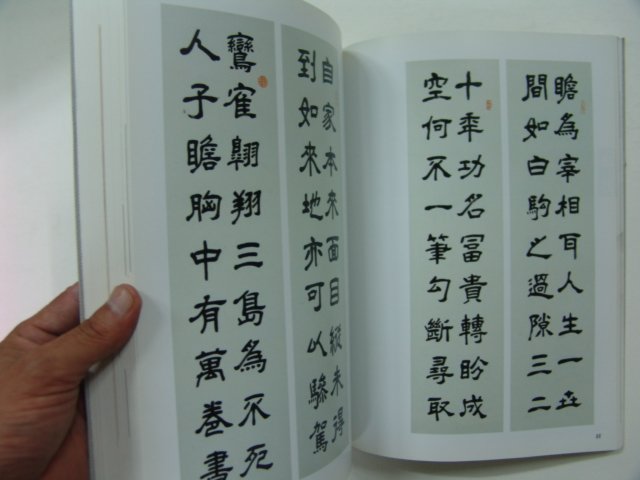 瞻為宰相耳人生一世
間如白駒之過隙三二
十年功名冨貴轉盼成
空何不一筆勾斷尋取
自家本來面目縱未得
到如來地亦可以驂駕
鸞寉翱翔三島為不死
人子瞻胸中有萬卷書